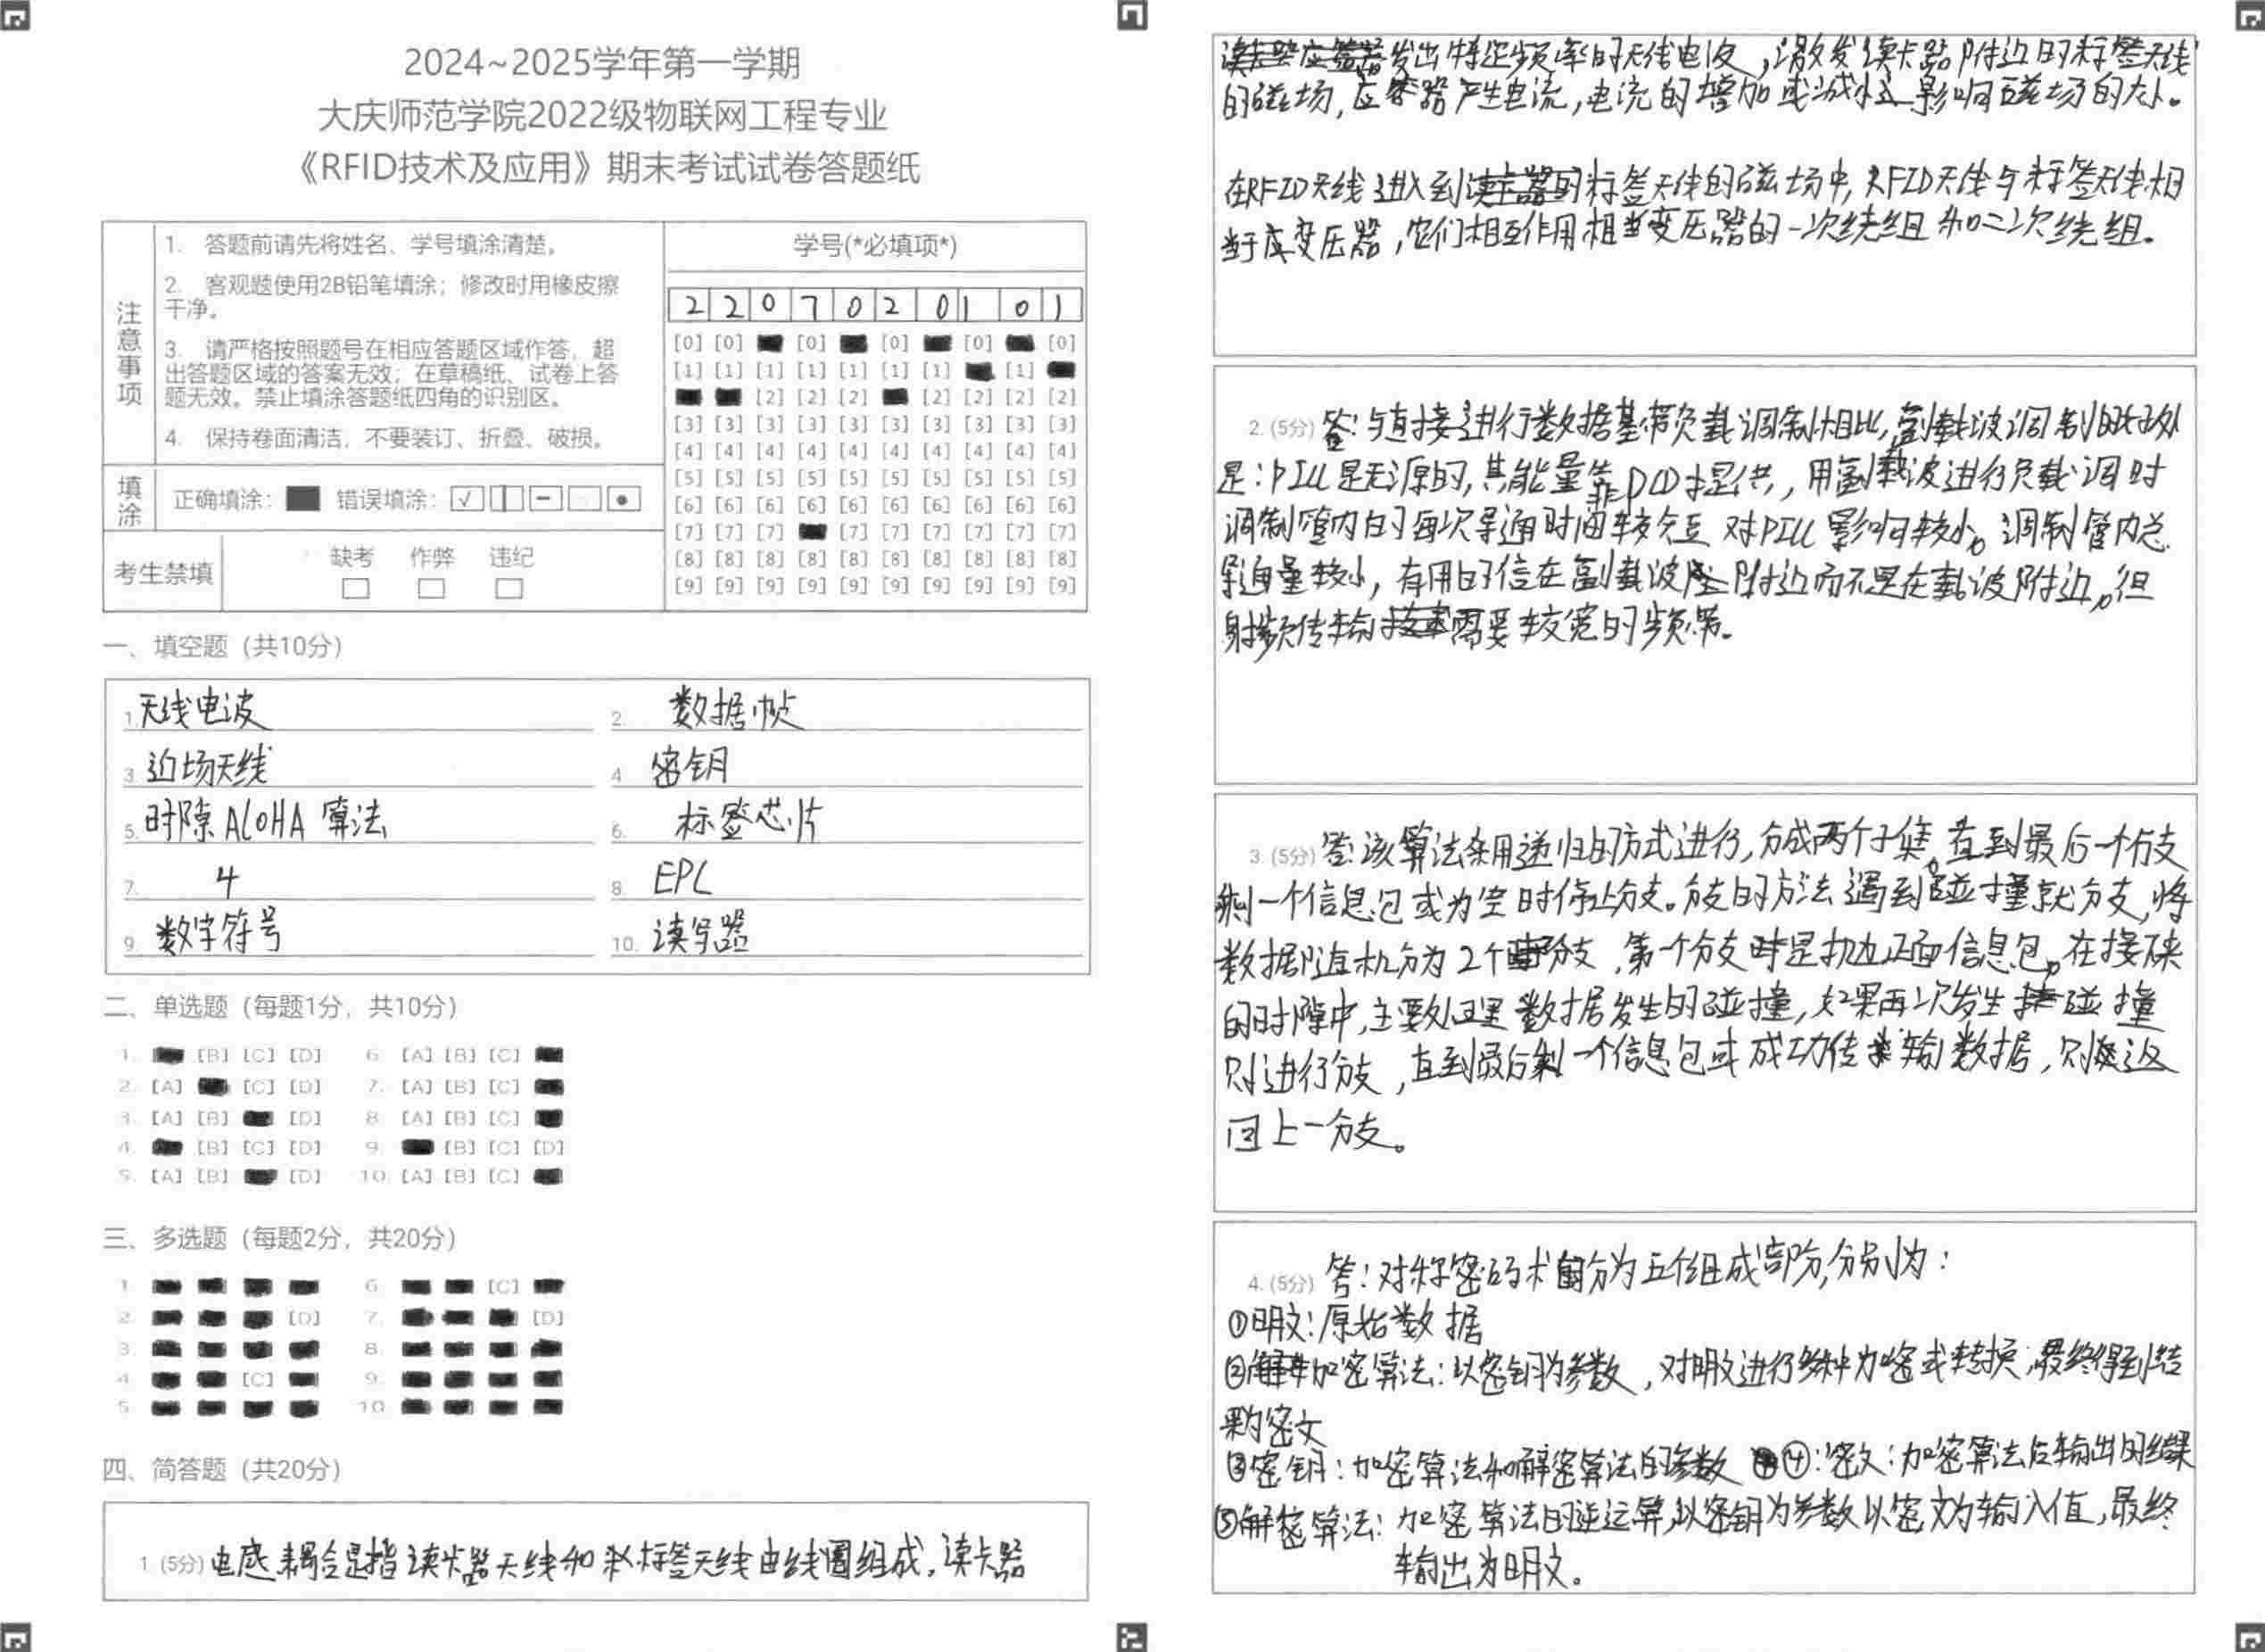 2024~2025学年第一学期
大庆师范学院2022级物联网工程专业
《RFID技术及应用》期末考试试卷答题纸
注意事项
1. 答题前请先将姓名、学号填涂清楚。
2. 客观题使用2B铅笔填涂；修改时用橡皮擦
干净。
3. 请严格按照题号在相应答题区域作答，超
出答题区域的答案无效；在草稿纸、试卷上答
题无效。禁止填涂答题纸四角的识别区。
4. 保持卷面清洁，不要装订、折叠、破损。
填涂 正确填涂： 错误填涂：
考生禁填 缺考 作弊 违纪
学号(*必填项*)
2 2 0 7 0 2 0 1 0 1
[0] [0] [0] [0] [0] [0]
[1] [1] [1] [1] [1] [1] [1] [1]
[2] [2] [2] [2] [2] [2] [2]
[3] [3] [3] [3] [3] [3] [3] [3] [3] [3]
[4] [4] [4] [4] [4] [4] [4] [4] [4] [4]
[5] [5] [5] [5] [5] [5] [5] [5] [5] [5]
[6] [6] [6] [6] [6] [6] [6] [6] [6] [6]
[7] [7] [7] [7] [7] [7] [7] [7] [7]
[8] [8] [8] [8] [8] [8] [8] [8] [8] [8]
[9] [9] [9] [9] [9] [9] [9] [9] [9] [9]
一、填空题（共10分）
1. 天线电波 2. 数据帧
3 近场天线 4 密钥
5. 时隙ALOHA算法 6. 标签芯片
7. 4 8. EPC
9. 数字符号 10. 读写器
二、单选题（每题1分，共10分）
1. [B] [C] [D] 6 [A] [B] [C]
2. [A] [C] [D] 7. [A] [B] [C]
3. [A] [B] [D] 8 [A] [B] [C]
4. [B] [C] [D] 9. [B] [C] [D]
5. [A] [B] [D] 10. [A] [B] [C]
三、多选题（每题2分，共20分）
1 6 [C]
2. [D] 7. [D]
3. 8
4 [C] 9.
5 10
四、简答题（共20分）
1 (5分) 电感耦合是指读卡器天线和标签天线由线圈组成，读卡器
发出特定频率的无线电波，激发读卡器附近的标签天线
的磁场，应答器产生电流，电流的增加或减小影响磁场的大小。
在RFID天线进入到标签天线的磁场中，RFID天线与标签天线相
当于变压器，它们相互作用相当变压器的一次绕组和二次绕组。
2. (5分) 答：与直接进行数据基带负载调制相比，副载波调制的好处
是：PICC是无源的，其能量靠PCD提供，用副载波进行负载调时
调制管内的每次导通时间较短对PICC影响较小。调制管内总
导通量较小，有用的信在副载波附近而不是在载波附近，但
射频传输需要较宽的频带。
3. (5分) 答：该算法采用递归的方式进行，分成两个子集，直到最后一个分支
剩一个信息包或为空时停止分支。分支的方法遇到碰撞就分支，将
数据随机分为2个分支，第一个分支时是抛正面信息包。在接下来
的时隙中，主要处理数据发生的碰撞，如果再次发生碰撞
则进行分支，直到最后剩一个信息包或成功传输数据，则返
回上一分支。
4. (5分) 答：对称密码术分为五个组成部分，分别为：
①明文：原始数据
②加密算法：以密钥为参数，对明文进行多种加密或转换，最终得到结
果为密文
③密钥：加密算法和解密算法的参数 ④：密文：加密算法后输出的结果
⑤解密算法：加密算法的逆运算，以密钥为参数以密文为输入值，最终
输出为明文。